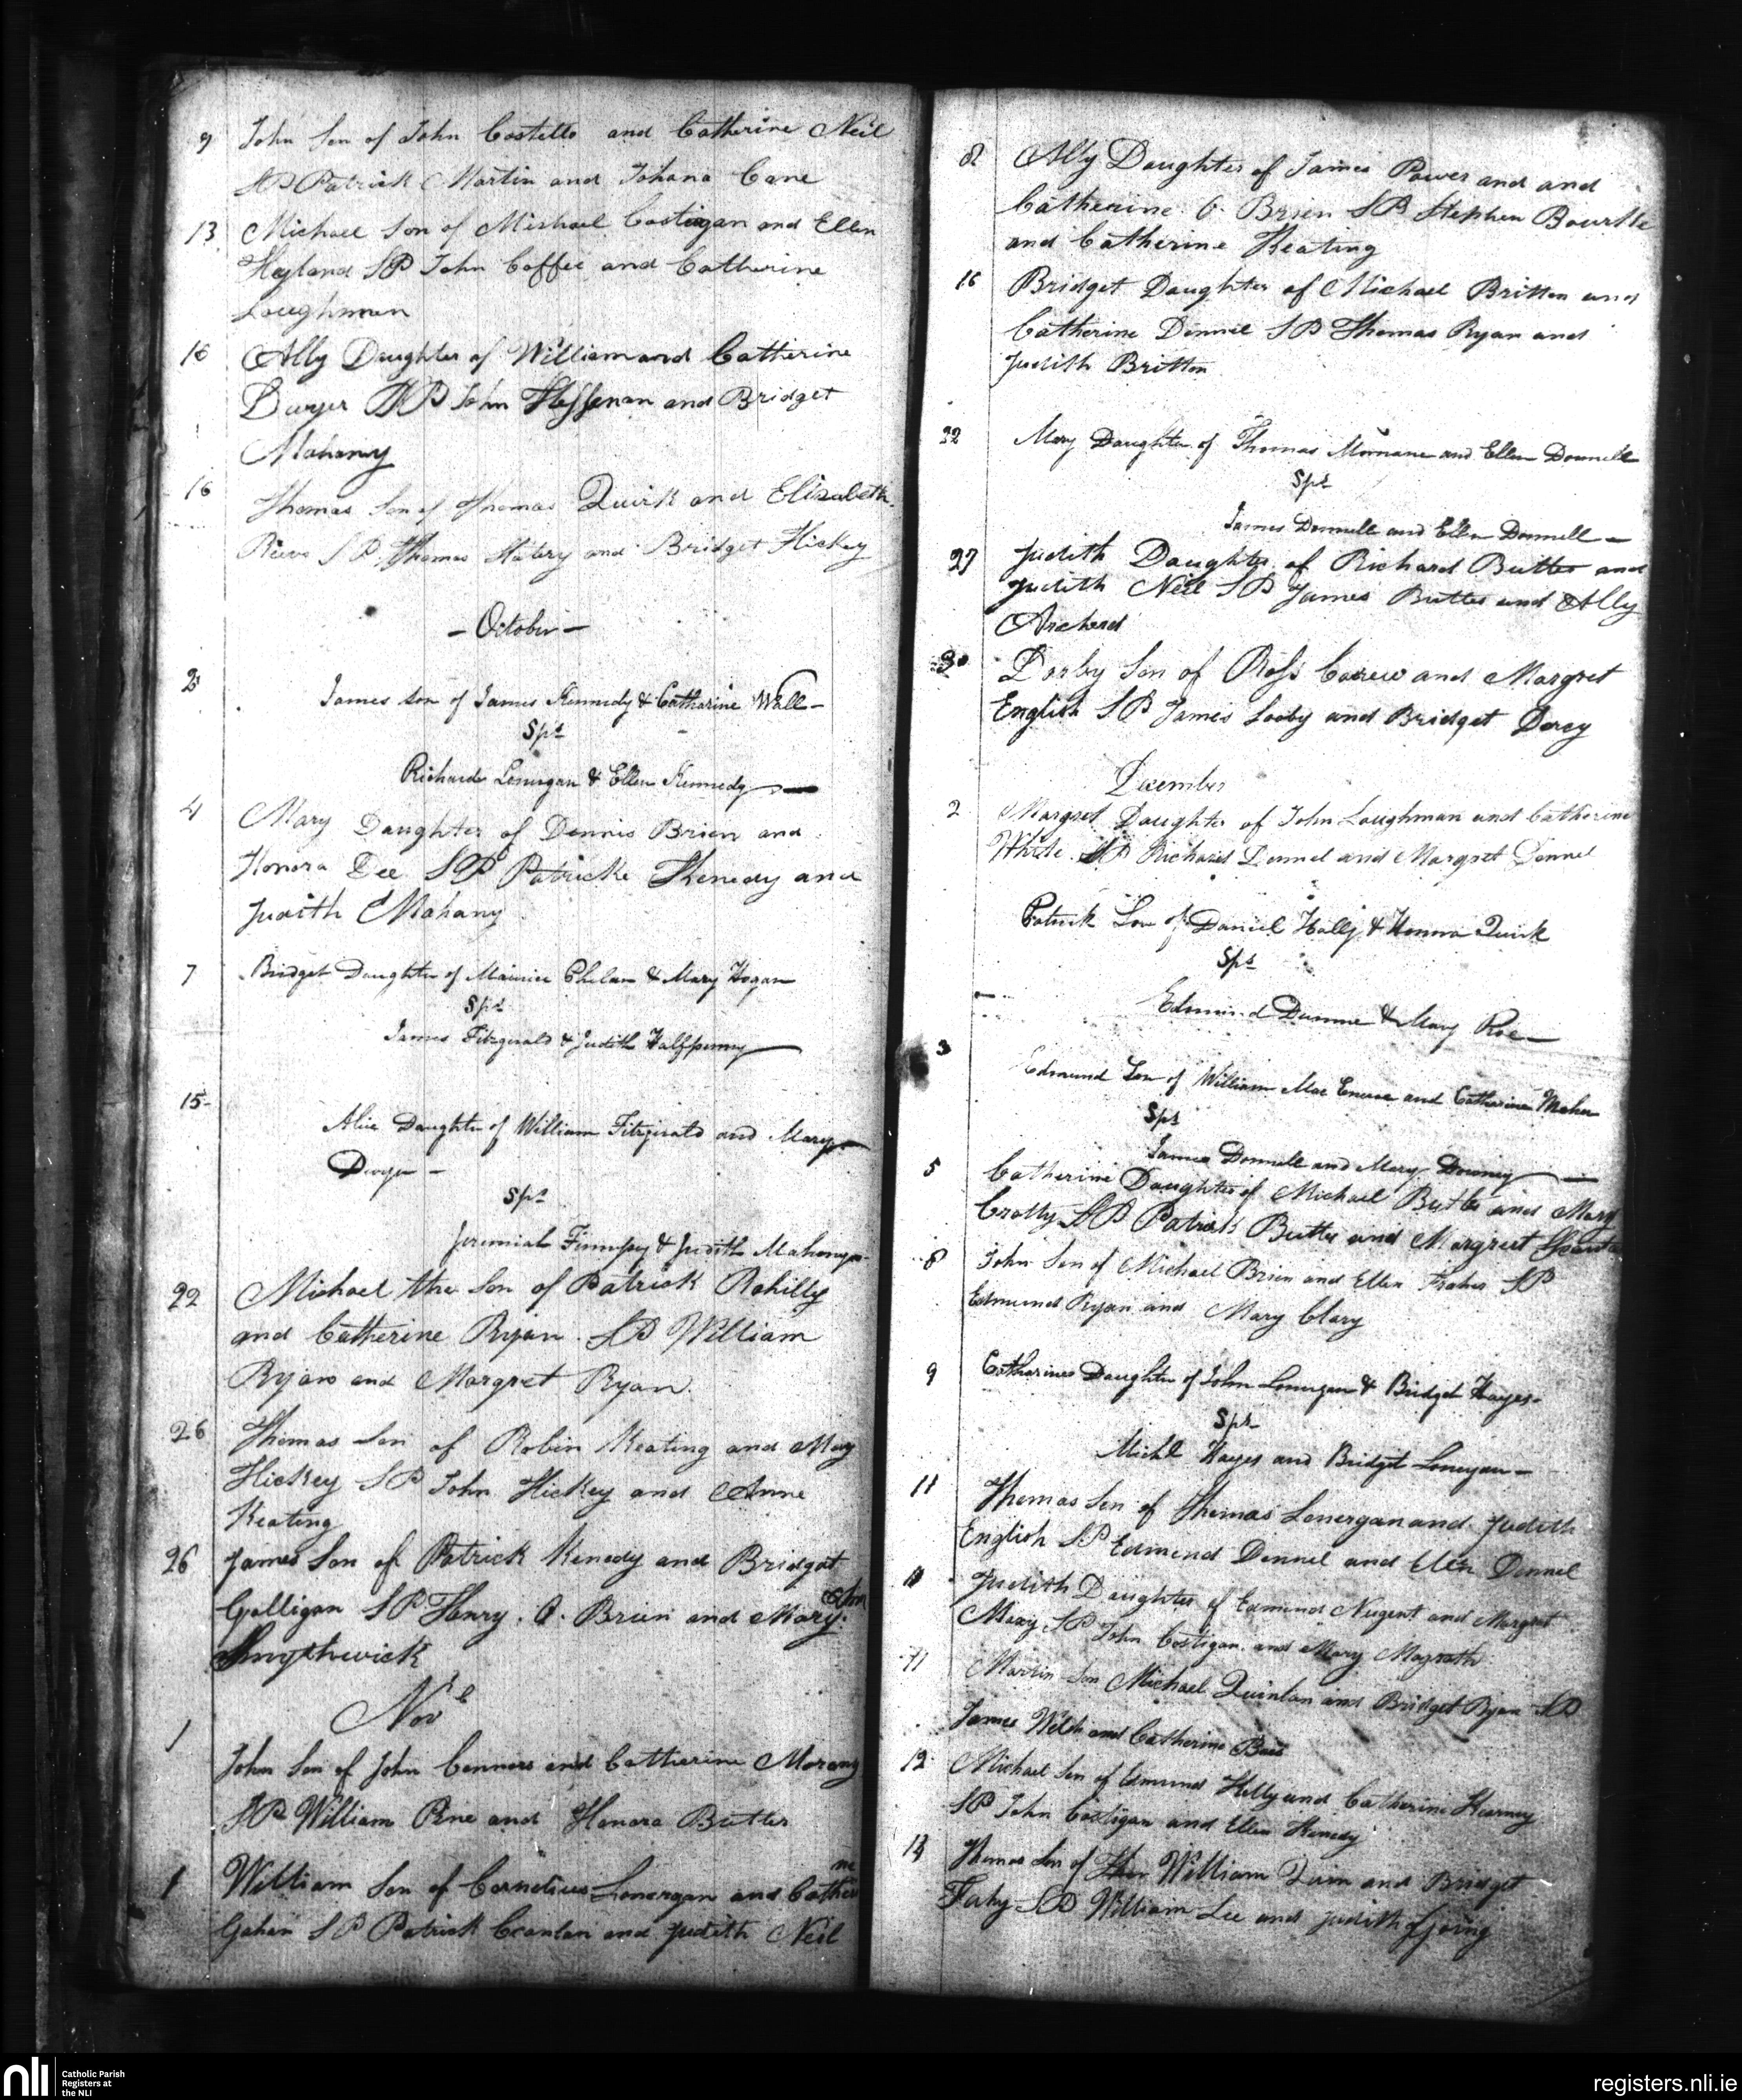 9 John Son of John Costello and Catherine Neil
SP Patrick Martin and Johana Cane
13 Michael Son of Michael Costigan and Ellen
Hyland SP John Coffee and Catherine
Loughman
16 Ally Daughter of William and Catherine
Dwyer SP John Heffernan and Bridget
Mahony
16 Thomas Son of Thomas Quirk and Elizabeth
SP Thomas and Bridget Hickey
- October -
2 James son of James Kennedy & Catharine Wall -
Sps
Richard Lonergan & Ellen Kennedy -
4 Mary Daughter of Dennis Brien and
Honora Dee SP Patricke Kenedy and
Judith Mahany
7 Bridget Daughter of Maurice Phelan & Mary Hogan
Sps
James Fitzgerald & Judith Halfpenny
15- Alice Daughter of William Fitzgerald and Mary
Dwyer -
Sps
Jeremiah & Judith Mahony -
22 Michael the Son of Patrick Rahilly
and Catherine Ryan. SP William
Ryan and Margret Ryan.
26 Thomas Son of Robin Keating and Mary
Hickey SP John Hickey and Anne
Keating
26 James Son of Patrick Kenedy and Bridget
Galligan SP Henry. O. Brien and Mary.
Smythwick
Novr
1 John Son of John Connors and Catherine
SP William and Honora Butler
1 William Son of Cornelius Lonergan and Catherine
Gahan SP Patrick Scanlan and Judith Neil
8 Ally Daughter of James Power and and
Catherine O. Brien SP Stephen
and Catherine Keating
16 Bridget Daughter of Michael Britton and
Catherine Dennel SP Thomas Ryan and
Judith Britton
22 Mary Daughter of Thomas and Ellen Donnell
Sps
James Donnell and Ellen Donnell -
27 Judith Daughter of Richard Butler and
Judith Neil SP James Butler and Ally
30 Darby Son of Ross Carew and Margret
English SP James Looby and Bridget Darcy
December
2 Margret Daughter of John Loughman and Catherine
White SP Richard Dennel and Margret Dennel
Patrick Son of Daniel Hally & Honora Quirk
Sps
Edmund Dunne & Mary Roe -
3 Edmund Son of William Mac and Catharine Maher
Sps
James Donnell and Mary Downey -
5 Catherine Daughter of Michael Butler and Mary
Crotty SP Patrick Butler and Margret
8 John Son of Michael Brien and Ellen Fraher SP
Edmund Ryan and Mary Clary
9 Catharine Daughter of John Lonergan & Bridget Hayes -
Sps
Michl Hayes and Bridget Lonergan -
11 Thomas Son of Thomas Lonergan and Judith
English SP Edmund Dennel and Ellen Dennel
Judith Daughter of Edmund Nugent and Margret
SP John Costigan and Mary Magrath
11 Martin Son Michael Quinlan and Bridget Ryan SP
James Welsh and Catherine
12 Michael Son of Edmund Helly and Catherine Kearney
SP John Costigan and Ellen Kenedy
14 Thomas Son of William and Bridget
Fahy SP William Lee and Judith
nli Catholic Parish
Registers at
the NLI
registers.nli.ie